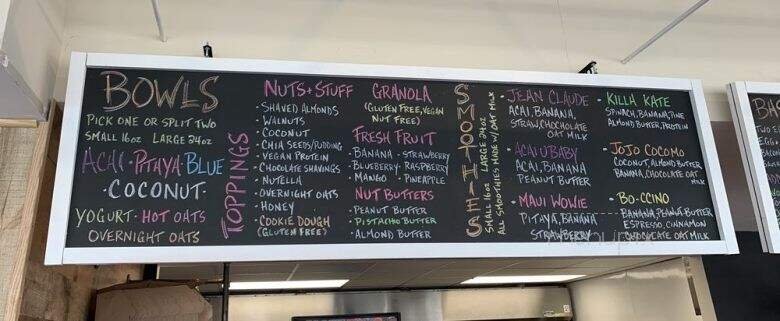 BOWLS
PICK ONE OR SPLIT TWO
SMALL 16oz LARGE 24oz
ACAI · PITAYA · BLUE
· COCONUT ·
YOGURT · HOT OATS
OVERNIGHT OATS
TOPPINGS
NUTS + STUFF
· SHAVED ALMONDS
· WALNUTS
· COCONUT
· CHIA SEEDS/PUDDING
· VEGAN PROTEIN
· CHOCOLATE SHAVINGS
· NUTELLA
· OVERNIGHT OATS
· HONEY
· COOKIE DOUGH
(GLUTEN FREE)
GRANOLA
(GLUTEN FREE, VEGAN
NUT FREE)
FRESH FRUIT
· BANANA · STRAWBERRY
· BLUEBERRY · RASPBERRY
· MANGO · PINEAPPLE
NUT BUTTERS
· PEANUT BUTTER
· PISTACHIO BUTTER
· ALMOND BUTTER
SMOOTHIES
SMALL 16oz LARGE 24oz
ALL SMOOTHIES MADE W/ OAT MILK
· JEAN CLAUDE
ACAI, BANANA,
STRAW, CHOCHOLATE
OAT MILK
· ACAI U BABY
ACAI, BANANA
PEANUT BUTTER
· MAUI WOWIE
PITAYA, BANANA
STRAWBERRY
· KILLA KATE
SPINACH, BANANA, PINE
ALMOND BUTTER, PROTEIN
· JOJO COCOMO
COCONUT, ALMOND BUTTER
BANANA, CHOCOLATE OAT
MILK
· BO-CCINO
BANANA, PEANUT BUTTER
ESPRESSO, CINNAMON
CHOCOLATE OAT MILK